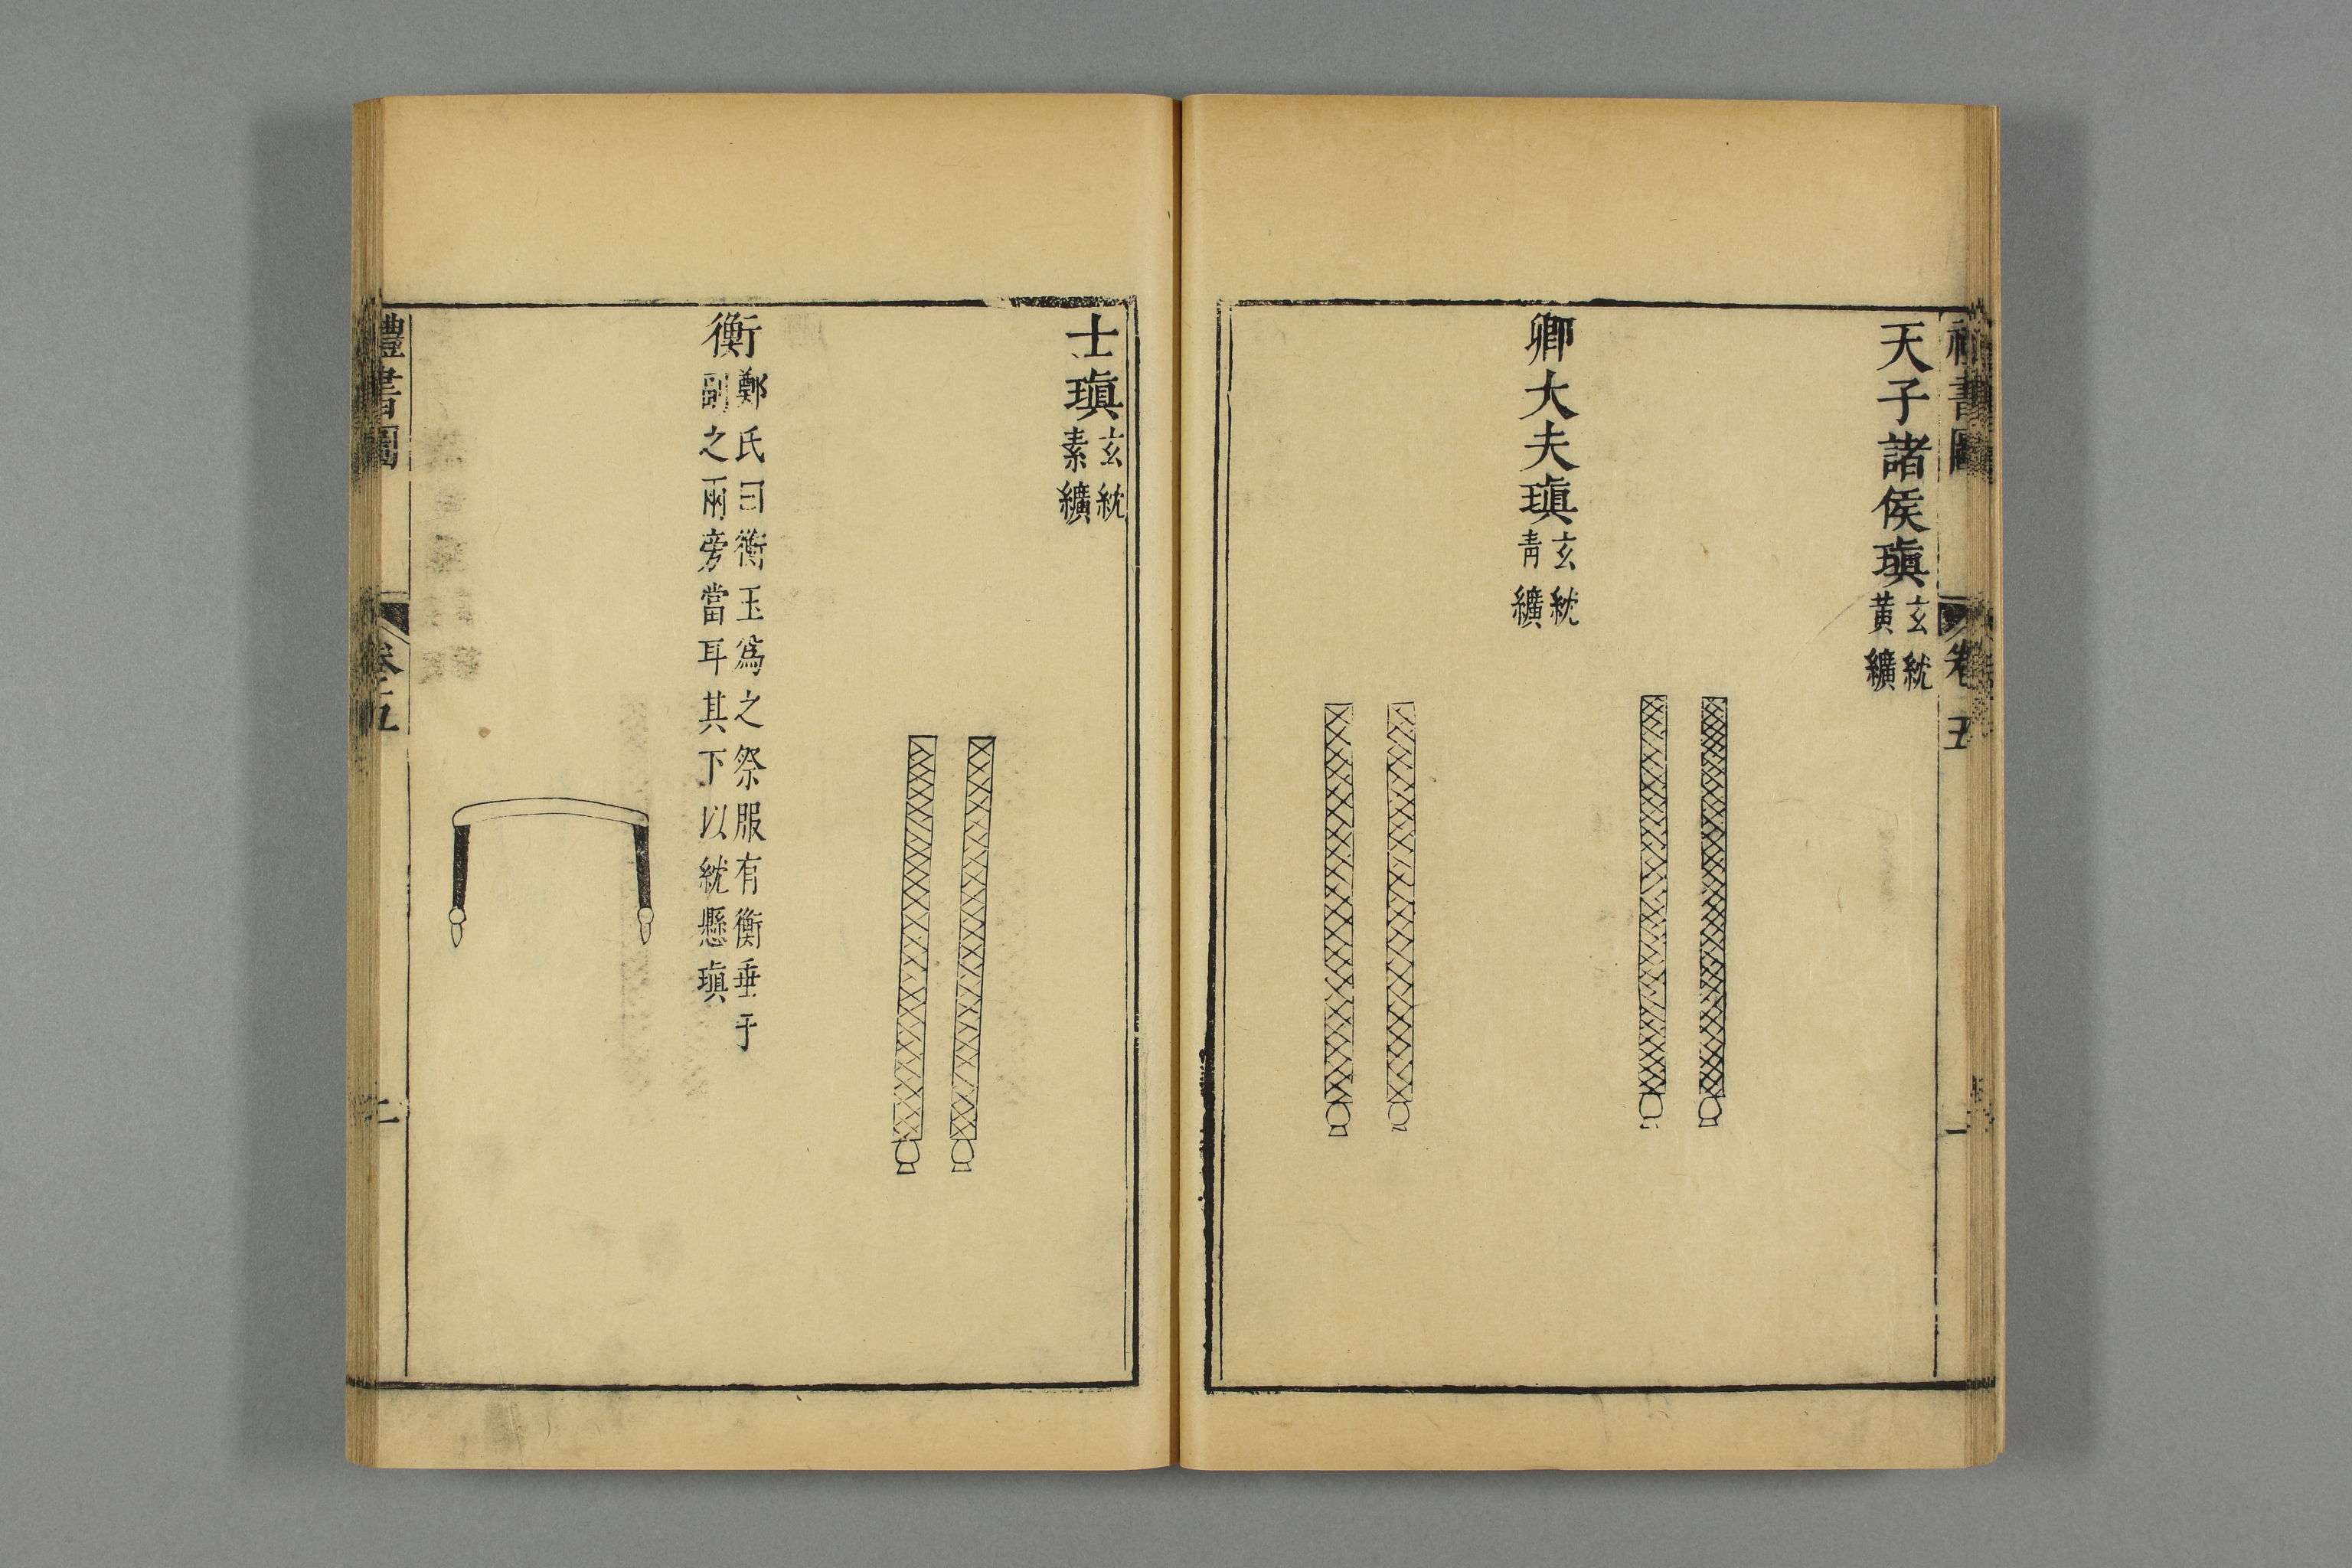 禮書圖 卷五 一
天子諸侯瑱 玄紞
黃纊
卿大夫瑱 玄紞
青纊
士瑱 玄紞
素纊
衡 鄭氏曰衡玉爲之祭服有衡垂于
副之兩旁當耳其下以紞懸瑱
禮書圖 卷五 二